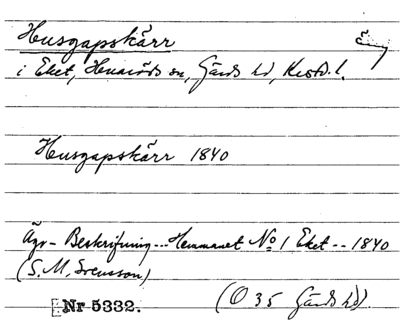 Husgapskärr Äng
i Eket, Huaröds sn, Gärds hd, Krstd. l.
Husgapskärr 1840
Äga-Beskrifning... Hemmanet No 1 Eket -- 1840
(S. M. Svensson)
Nr 5332. (O 35 Gärds hd)